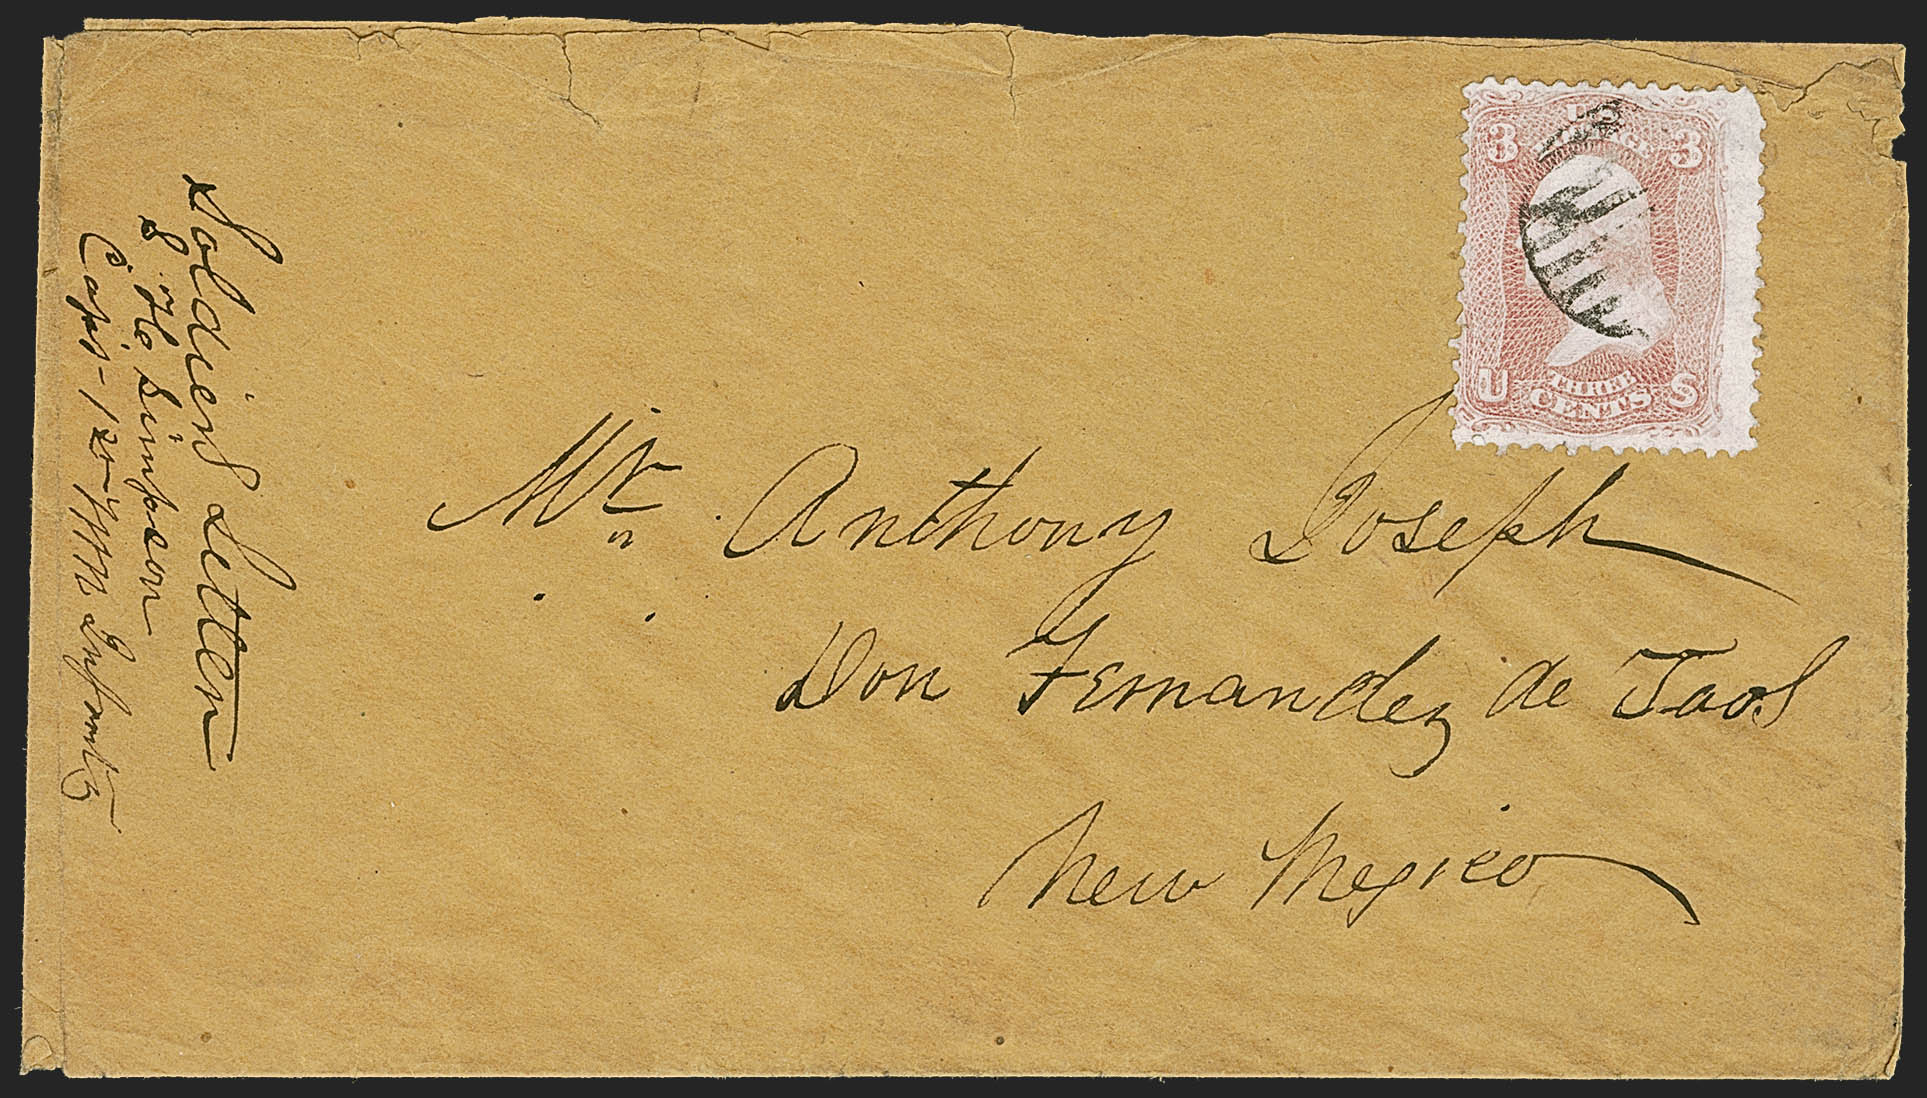 Soldiers Letter
S. H. Simpson
Capt - 1st N M Infantry
3 U.S. POSTAGE 3
U THREE S
CENTS
Mr. Anthony Joseph
Don Fernandez de Taos
New Mexico